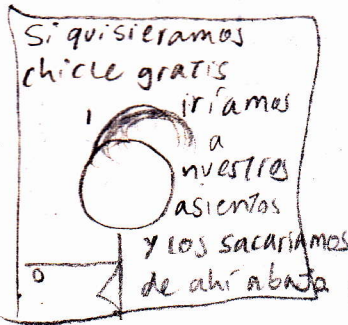 Si quisieramos
chicle gratis
iríamos
a
nuestros
asientos
y los sacaríamos
de ahí abajo